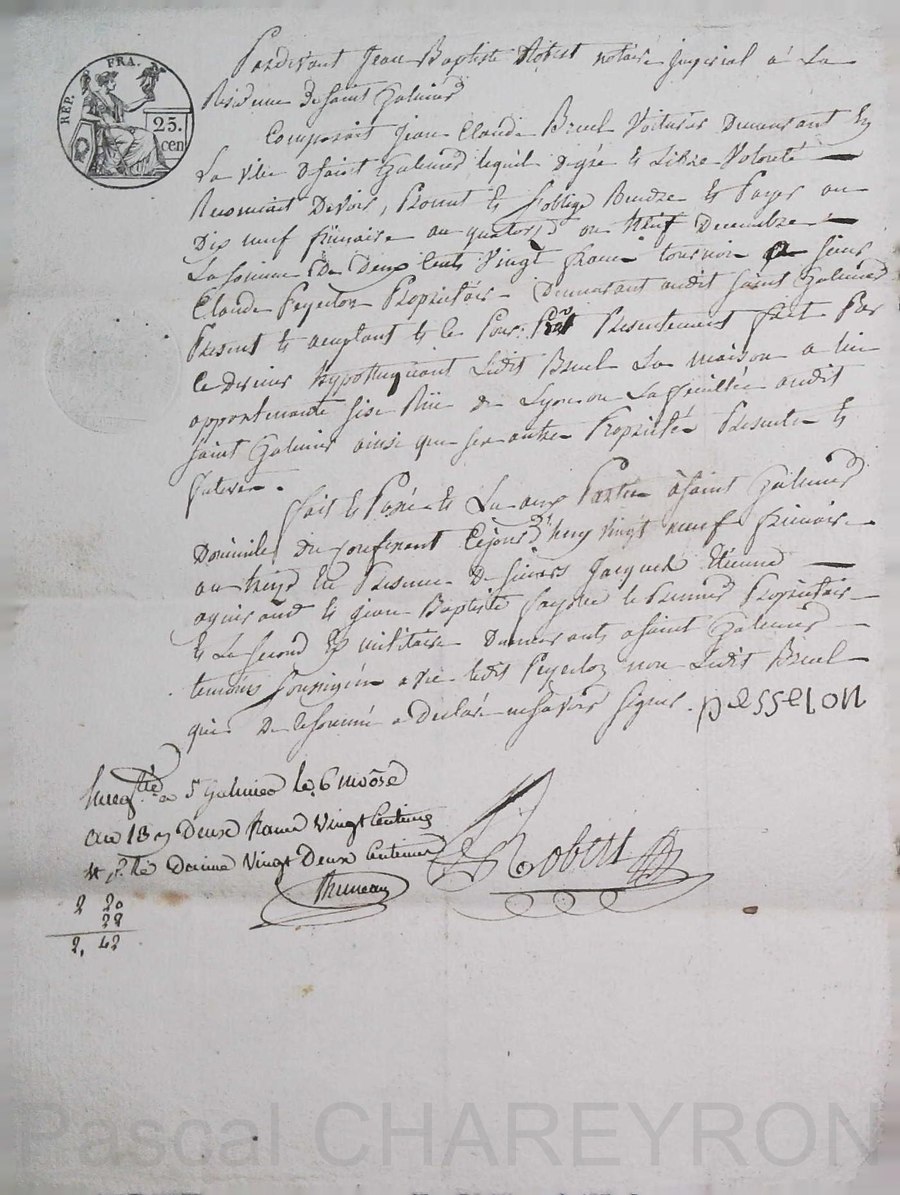 RÉP. FRA.
25.
cen
Pardevant Jean Baptiste Robert notaire Imperial à La
Residence de Saint Galmier
Comparait Jean Claude Breul Voiturier Demeurant En
La ville de Saint Galmier lequel de gré et Libre Volonté
Reconnait Devoir, Promet et s'oblige Rendre et Payer au
Dix neuf frimaire an quatorze ou neuf Decembre
La somme De Deux Cents Vingt francs tournois a sieur
Claude Peyselon Proprietaire Demeurant audit Saint Galmier
Present et acceptant et ce Pour Pret Presentement fait Par
ce dernier hypothequant Ledit Breul La maison a lui
appartenante sise Rüe de Lyon ou La feuillée audit
Saint Galmier ainsi que ses autres Proprietés Presente et
futures.
fait et Passé et Lu aux Parties à Saint Galmier
Domicile du Cejourd'huy vingt neuf frimaire
an treize En Presence De Sieurs Jacques Etienne
et Jean Baptiste le Premier Proprietaire
et Le Second Ex militaire Demeurants a Saint Galmier
temoins Soussignés avec ledit Peyselon non Ledit Breul
qui De ce sommé a Declaré ne Savoir Signer. pesselon
Enreg.tré a St Galmier le 6 nivôse
an 13 Deux francs Vingt Centimes
Decime Vingt Deux Centimes
Robert
2 20
22
2, 42
Pascal CHAREYRON